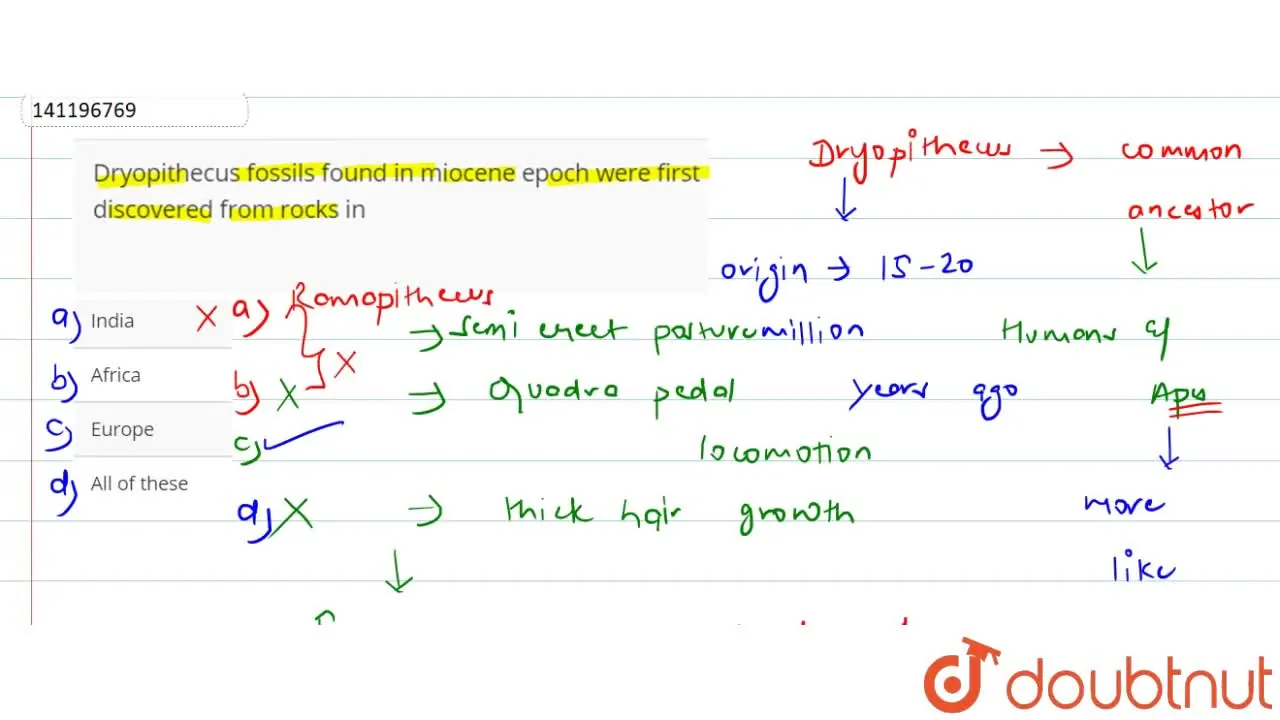 141196769
Dryopithecus fossils found in miocene epoch were first
discovered from rocks in
Dryopithecus → common
ancestor
origin → 15-20
a) India X a) Ramopithecus
→ semi erect posture million Humans &
b) Africa b) X X → Quadra pedal years ago Apes
c) Europe c) locomotion
d) All of these d) X → thick hair growth more
like
doubtnut